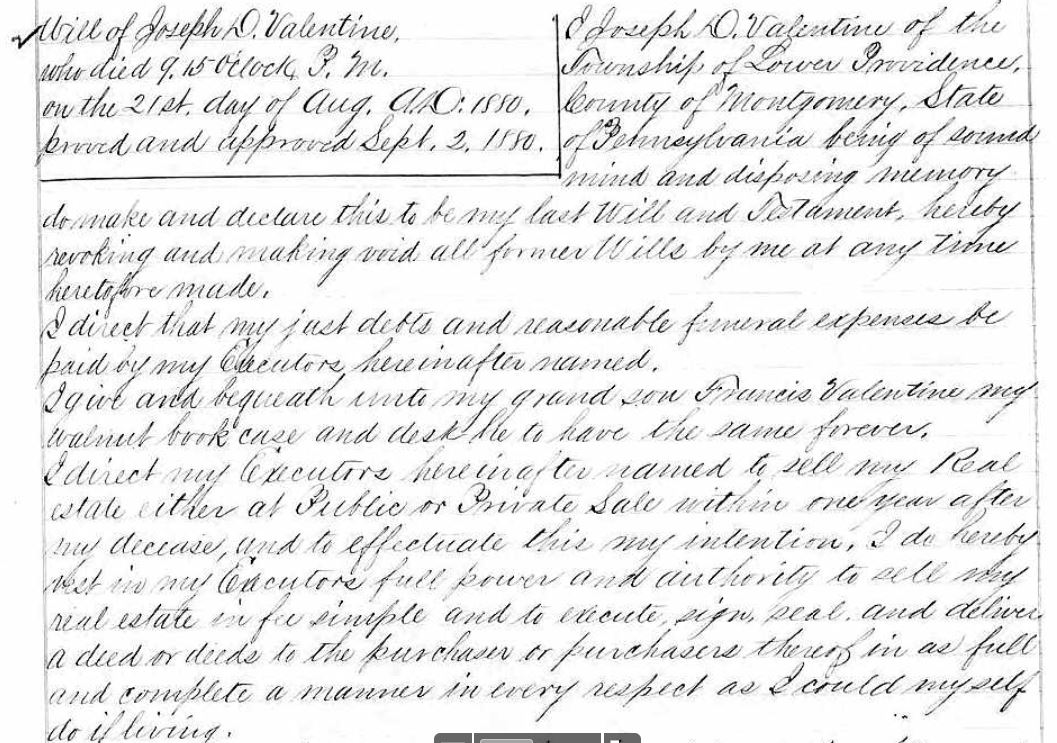 Will of Joseph D. Valentine,
who died 9.15 O'clock, P. M.
on the 21st. day of Aug. A.D. 1880.
proved and approved Sept. 2. 1880.
I Joseph D. Valentine of the
Township of Lower Providence,
County of Montgomery, State
of Pennsylvania being of sound
mind and disposing memory
do make and declare this to be my last Will and Testament, hereby
revoking and making void all former Wills by me at any time
heretofore made.
I direct that my just debts and reasonable funeral expenses be
paid by my Executors, hereinafter named.
I give and bequeath unto my grand son Francis Valentine my
walnut book case and desk he to have the same forever.
I direct my Executors hereinafter named to sell my Real
estate either at Public or Private Sale within one year after
my decease, and to effectuate this my intention, I do hereby
vest in my Executors full power and authority to sell my
real estate in fee simple and to execute, sign, seal, and deliver
a deed or deeds to the purchaser or purchasers thereof in as full
and complete a manner in every respect as I could myself
do if living.